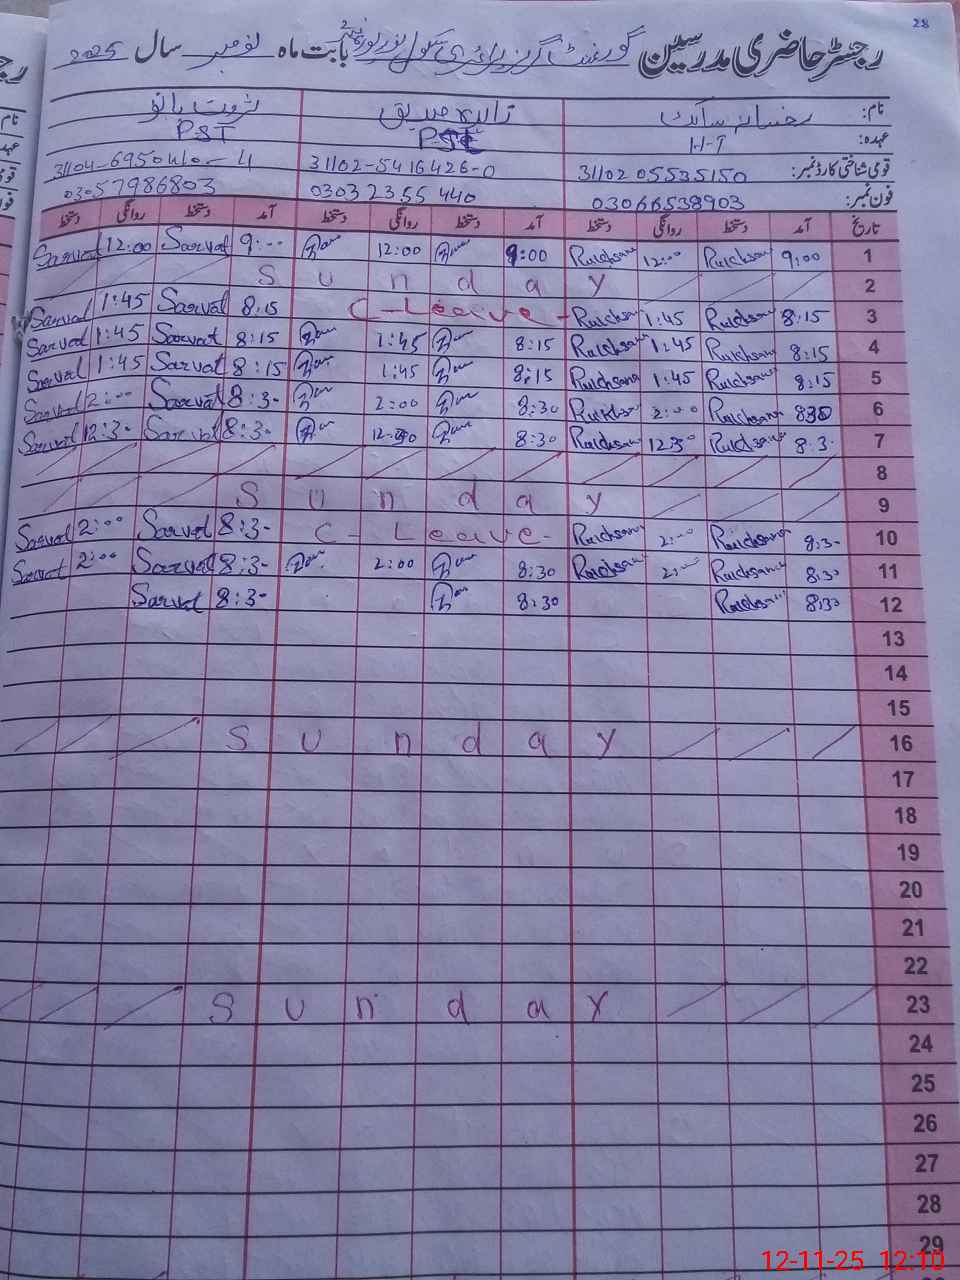 28
رجسٹر حاضری مدرسین گورنمنٹ گرلز پرائمری سکول بابت ماہ نومبر سال 2025
نام: رخسانہ ثروت بانو
عہدہ: H-T PST PST
قومی شناختی کارڈ نمبر: 31102 05535150 31102-5416426-0
فون نمبر: 03066538903 03032355440 03057986803
تاریخ آمد دستخط روانگی دستخط آمد دستخط روانگی دستخط آمد دستخط روانگی دستخط
1 9:00 Ruichsana 12:00 Ruichsana 9:00 12:00 9:00 Sarvat 12:00 Sarvat
2 Sunday
3 8:15 Ruichsana 1:45 Ruichsana C-Leave- 8:15 Sarvat 1:45 Sarvat
4 8:15 Ruichsana 1:45 Ruichsana 8:15 1:45 8:15 Sarvat 1:45 Sarvat
5 8:15 Ruichsana 1:45 Ruichsana 8:15 1:45 8:15 Sarvat 1:45 Sarvat
6 830 Ruichsana 2:00 Ruichsana 8:30 2:00 8:30 Sarvat 2:00 Sarvat
7 8:30 Ruichsana 1230 Ruichsana 8:30 12:30 8:30 Sarvat 12:30 Sarvat
8
9 Sunday
10 8:30 Ruichsana 2:00 Ruichsana C-Leave- 8:30 Sarvat 2:00 Sarvat
11 8:30 Ruichsana 2:00 Ruichsana 8:30 2:00 8:30 Sarvat 2:00 Sarvat
12 8:30 Ruichsana 8:30 8:30 Sarvat
13
14
15
16 Sunday
17
18
19
20
21
22
23 Sunday
24
25
26
27
28
29
12-11-25 12:10